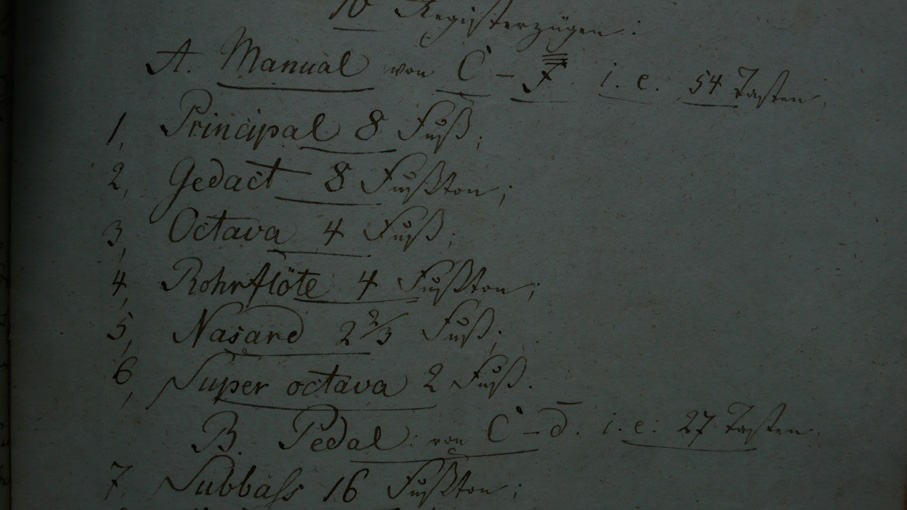 10 Registerzügen:
A. Manual von C – F̿ i. e. 54 Tasten
1, Principal 8 Fuß;
2, Gedact 8 Fußton;
3, Octava 4 Fuß;
4, Rohrflöte 4 Fußton;
5, Nasard 2 2/3 Fuß;
6, Super octava 2 Fuß.
B. Pedal: von C – d̅. i. e. 27 Tasten.
7. Subbass 16 Fußton;